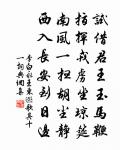 試借君王玉馬鞭
指揮戎虜坐瓊筵
南風一掃胡塵靜
西入長安到日邊
李白永王東巡歌其十
一詞典網集